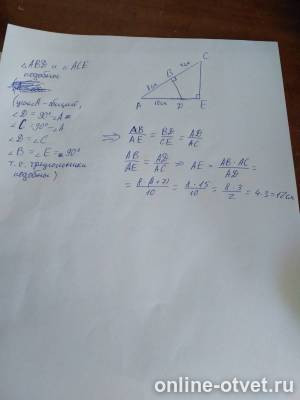 ∠ABD и ∠ACE
подобные
(угол A - общий,
∠D = 90° - A
∠C = 90° - A
∠D = ∠C
∠B = ∠E = 90°
т.о. треугольники
подобны)
A B C D E
8см 7см
10см
⇒ AB/AE = BD/CE = AD/AC
AB/AE = AD/AC ⇒ AE = AB · AC/AD =
= 8·(8+7)/10 = 8·15/10 = 8·3/2 = 4·3 = 12см
online-otvet.ru